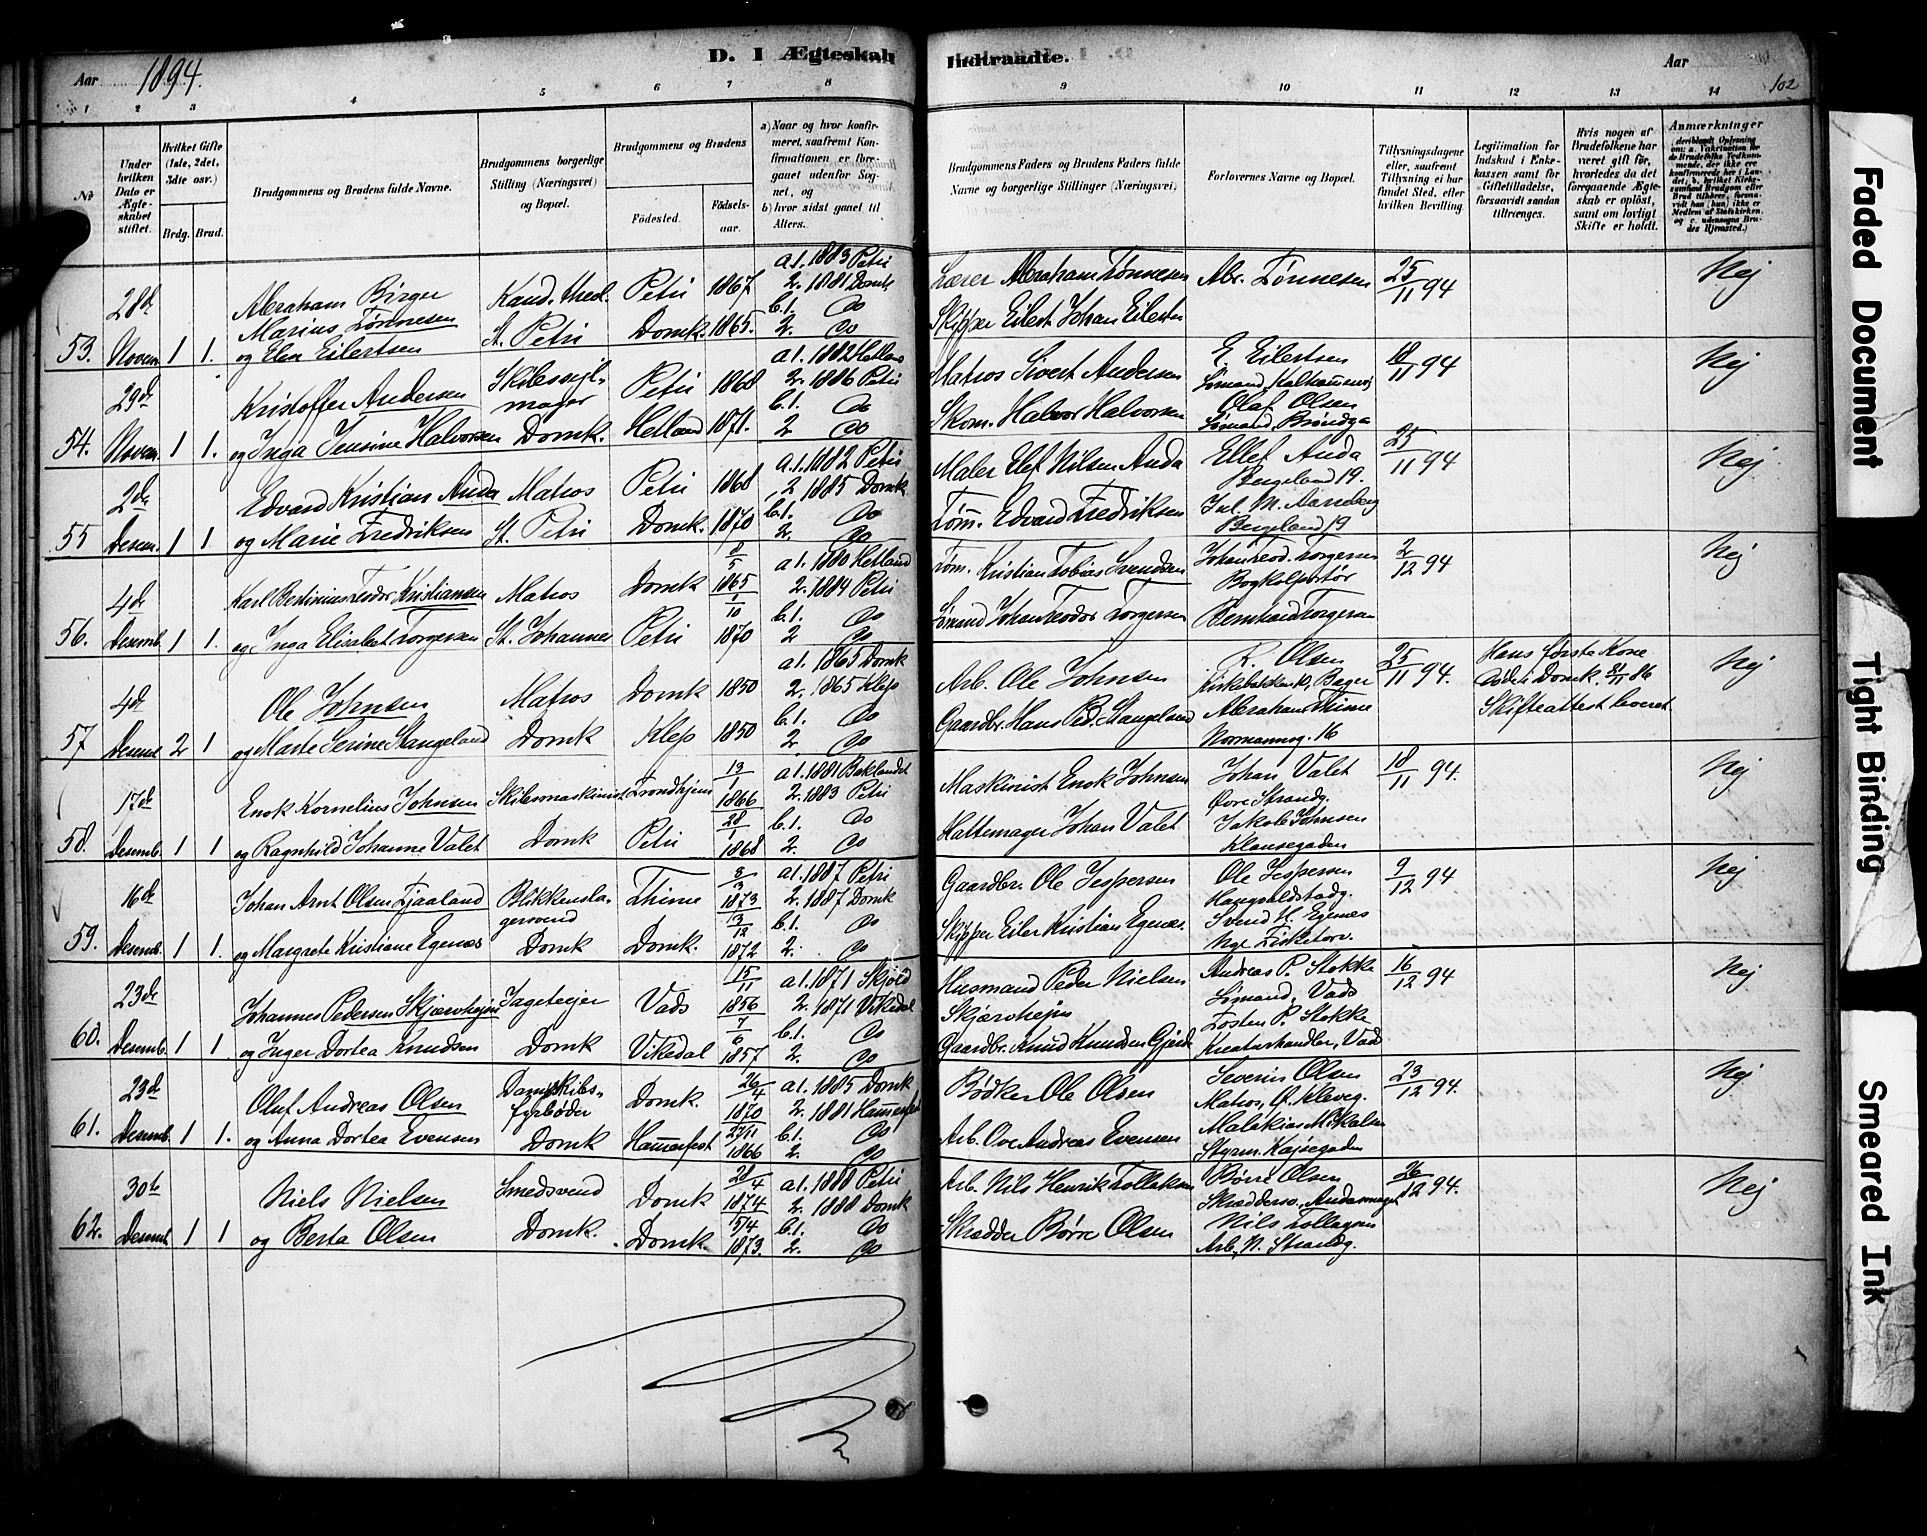 D. I Ægteskab Indtraadte.
Aar 1894.
Aar
102
1 2 3 4 5 6 7 8 9 10 11 12 13 14
Nº
Under hvilken Dato er Ægteskabet stiftet.
Hvilket Gifte (1ste, 2det, 3dte osv.)
Brdg. Brud.
Brudgommens og Brudens fulde Navne.
Brudgommens borgerlige Stilling (Næringsvei) og Bopæl.
Brudgommens og Brudens
Fødested.
Fødselsaar.
a) Naar og hvor konfirmeret, saafremt Konfirmationen er foregaaet udenfor Sognet, og
b) hvor sidst gaaet til Alters.
Brudgommens Faders og Brudens Faders fulde Navne og borgerlige Stillinger (Næringsvei)
Forlovernes Navne og Bopæl.
Tillysningsdagene eller, saafremt Tillysning ei har fundet Sted, efter hvilken Bevilling.
Legitimation for Indskud i Enkekassen samt for Giftetilladelse, forsaavidt saadan tiltrænges.
Hvis nogen af Brudefolkene har været gift før, hvorledes da det foregaaende Ægteskab er opløst, samt om lovligt Skifte er holdt.
Anmærkninger
53. 28de Novem. 1 1.
Abraham Birger
Marius Tønnesen
og Elen Eilertsen
Kand. theol.
St. Petri
Petri 1867
Domk. 1865.
a1. 1883 Petri
2. 1881 Domk
b.1. Do
2. Do
Lærer Abraham Tønnesen
Skipper Eilert Johan Eilertsen
Abr. Tønnesen
E. Eilertsen
25/11 94
Nej
54. 29de Novem. 1 1.
Kristoffer Andersen
og Inga Jensine Halvorsen
Skibsseil-
mager
Domk.
Petri 1868
Hetland 1871.
a1. 1882 Hetland
2. 1886 Petri
b.1. Do
2 Do
Matros Sivert Andersen
Skom. Halvor Halvorsen
Sømand, Kalhammervg
Olaf Olsen
Sømand, Brøndga
18/11 94
Nej
55 2de Desem. 1 1.
Edvard Kristian Anda
og Marie Fredriksen
Matros
St. Petri
Petri 1868
Domk. 1870
a.1. 1882 Petri
2 1885 Domk
b.1. Do
2. Do
Maler Elef Nilsen Anda
Tøm. Edvard Fredriksen
Ellef Anda
Bergeland 19.
Jul. M. Aarsberg
Bergeland 19
25/11 94
Nej
56. 4de Desemb. 1 1.
Karl Bertinius Teodor Kristiansen
og Inga Elisabet Torgersen
Matros
St. Johannes
Domk 8/5 1865
Petri 1/10 1870
a1. 1880 Hetland
2. 1884 Petri
b.1. Do
2 Do
Tøm. Kristian Tobias Svendsen
Sømand Johan Teodor Torgersen
Johan Teod. Torgersen
Bogkolportør
Bernhard Torgersen
2/12 94
Nej
57 4de Desemb 2 1
Ole Johnsen
og Marte Serine Stangeland
Matros
Domk
Domk 1850
Klep 1850
a1. 1865 Domk
2. 1865 Klep
b.1. Do
2. Do
Arb. Ole Johnsen
Gaardbr. Hans Ped. Stangeland
R. Olsen
Kirkebakken 10, Bager
Abraham Thime
Normannsg. 16
25/11 94.
Hans første Kone
døde i Domk. 21/11 86
Skifteattest leveret
Nej
58. 17de Desemb. 1 1
Enok Kornelius Johnsen
og Ragnhild Johanne Valet
Skibsmaskinist
Domk
Trondhjem 13/1 1866
Petri 28/1 1868
a1. 1881 Baklandet
2. 1883 Petri
b.1. Do
2. Do
Maskinist Enok Johnsen
Hattemager Johan Valet
Johan Valet
Øvre Strandg.
Jakob Johnsen
Klausegaden
18/11 94.
Nej
59. 16de Desemb. 1 1.
Johan Arnt Olsen Tjaaland
og Margrete Kristiane Egenæs
Blikkensla-
gersvend
Domk
Thime 3/3 1873
Domk. 13/12 1872
a1. 1887 Petri
2. 1887 Domk
b.1. Do
2. Do
Gaardbr. Ole Jespersen
Skipper Eiler Kristian Egenæs.
Ole Jespersen
Haugvaldstadg.
Svend H. Egenæs
Nye Fisketorv.
9/12 94
Nej
60. 23de Desemb. 1 1
Johannes Pedersen Skjærvhejm
og Inger Dortea Knudsen
Domk
Vads 15/11 1856
Vikedal 7/6 1857
a1. 1871 Skjold
2. 1871 Vikedal
b.1. Do
2. Do
Husmand Peder Nielsen
Skjærvhejm
Gaardbr. Knud Knudsen Gjerde
Andreas P. Stokke
Sømand, Vads
Tosten P. Stokke
Kreaturhandler, Vads
16/12 94
Nej
61. 23de Desemb. 1 1.
Oluf Andreas Olsen
og Anna Dortea Evensen
Dampskibs-
fyrbøder
Domk
Domk. 26/4 1870
Hammerfest 27/11 1866
a1. 1885 Domk
2. 1881 Hammerfest
b.1. Do
2. Do
Bødker Ole Olsen
Arb. Ove Andreas Evensen
Severin Olsen
Matros, Ø. Kleveg.
Malakias Mikalsen
Styrm. Kajsegaden
23/12 94.
Nej
62. 30te Desemb 1 1
Niels Nielsen
og Berta Olsen
Smedsvend
Domk.
Domk 28/4 1874
Domk. 5/4 1873.
a1. 1888 Petri
2. 1888 Domk
b.1. Do
2. Do
Arb. Nils Henrik Tollaksen
Skrædder Børre Olsen
Børre Olsen
Skræddersv. Andasmuget
Nils Tollagsen
Arb. N. Strandg.
26/12 94.
Nej
Faded Document
Tight Binding
Smeared Ink